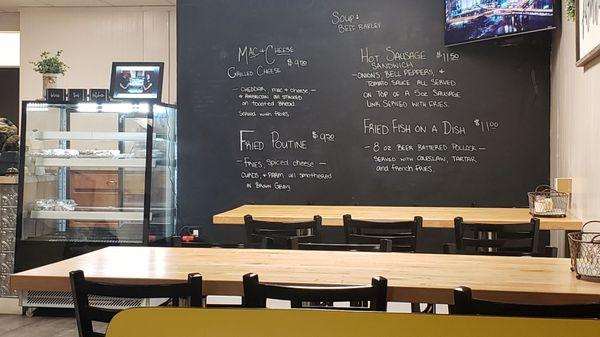 Soup -
Beef Barley
Mac & Cheese
Grilled Cheese $9.50
- Cheddar, mac & cheese -
on toasted Bread
Served with fries.
Fried Poutine $9.50
- Fries, Spiced cheese -
Curds, & Parm all smothered
in Brown Gravy
Hot Sausage $11.50
Sandwich
- Onions, Bell Peppers, &
Tomato Sauce all served
on Top of a 5oz Sausage
Link Served with fries.
Fried Fish on a Dish $11.00
- 8 oz Beer Battered Pollock -
Served with Coleslaw, Tartar
and french fries.